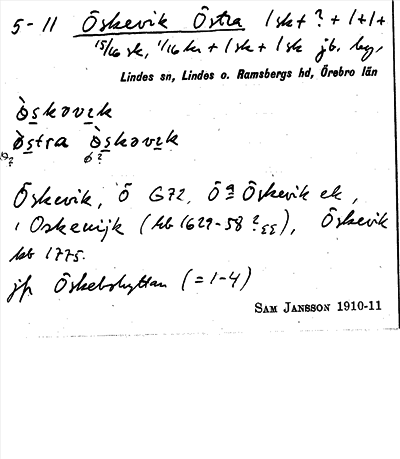 5-11 Öskevik Östra 1 sk + ? + 1+1+
15/16 sk, 1/16 kr + 1 sk + 1 sk jb. hy,
Lindes sn, Lindes o. Ramsbergs hd, Örebro län
òskovɩk
òstra òskovɩk
ø?
Öskevik, Ö G72, Ö a Öskevik ek,
i Oskewijk (kb 1629-58 ? ss), Öskevik
kb 1775.
jfr Öskebohyttan (= 1-4)
SAM JANSSON 1910-11